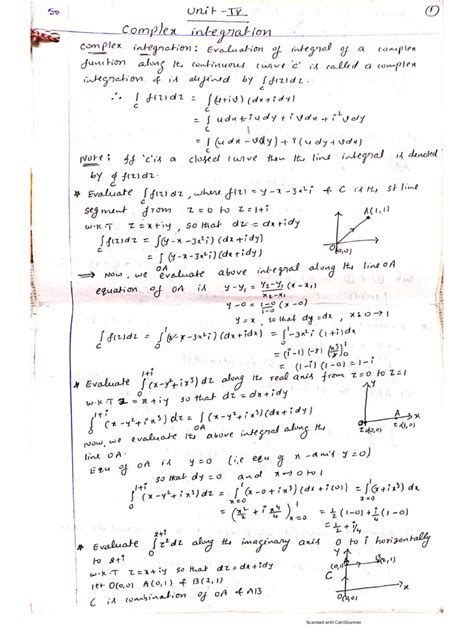 50
Unit - IV
①
Complex integration
Complex integration: Evaluation of integral of a complex
function along the continuous curve 'c' is called a complex
integration & is defined by ∫_C f(z)dz.
∴ ∫_C f(z)dz = ∫_C (u+iv) (dx+idy)
= ∫_C u dx + i u dy + i v dx + i² v dy
= ∫_C (u dx - v dy) + i (u dy + v dx)
Note: If 'C' is a closed curve then the line integral is denoted
by ∮_C f(z)dz.
* Evaluate ∫_C f(z)dz, where f(z) = y-x-3x²i & C is the st line
segment from z=0 to z=1+i
W.K.T z=x+iy, so that dz = dx+idy
∫_C f(z)dz = ∫_C (y-x-3x²i) (dx+idy)
= ∫_OA (y-x-3x²i) (dx+idy)
A(1,1)
O(0,0)
⇒ Now, we evaluate above integral along the line OA
equation of OA is y-y₁ = (y₂-y₁)/(x₂-x₁) (x-x₁)
y-0 = (1-0)/(1-0) (x-0)
y=x, so that dy=dx, x: 0→1
∫_C f(z)dz = ∫_0^1 (x-x-3x²i) (dx+idx) = ∫_0^1 -3x²i (1+i)dx
= (1-i) (1-0) = 1-i
* Evaluate ∫_0^{1+i} (x-y²+ix³)dz along the real axis from z=0 to z=1
W.K.T z=x+iy, so that dz=dx+idy
∫_0^{1+i} (x-y²+ix³)dz = ∫_C (x-y²+ix³)(dx+idy)
Now, we evaluate the above integral along the
line OA.
y
O
A
x
z=(0,0)
z=(1,0)
Equ of OA is y=0 (i.e equ of x-axis y=0)
so that dy=0 and x→0 to 1
∫_0^{1+i} (x-y²+ix³)dz = ∫_{x=0}^1 (x-0+ix³)(dx+i(0)) = ∫_{x=0}^1 (x+ix³)dx
= (x²/2 + i x⁴/4)_{x=0}^1 = 1/2 (1-0) + i/4 (1-0)
= 1/2 + i/4
* Evaluate ∫_0^{2+i} z²dz along the imaginary axis 0 to i horizontally
to 2+i
W.K.T z=x+iy so that dz=dx+idy
let O(0,0) A(0,1) & B(2,1)
C is combination of OA & AB
y
(0,1)
C
x
O(0,0)
Scanned with CamScanner